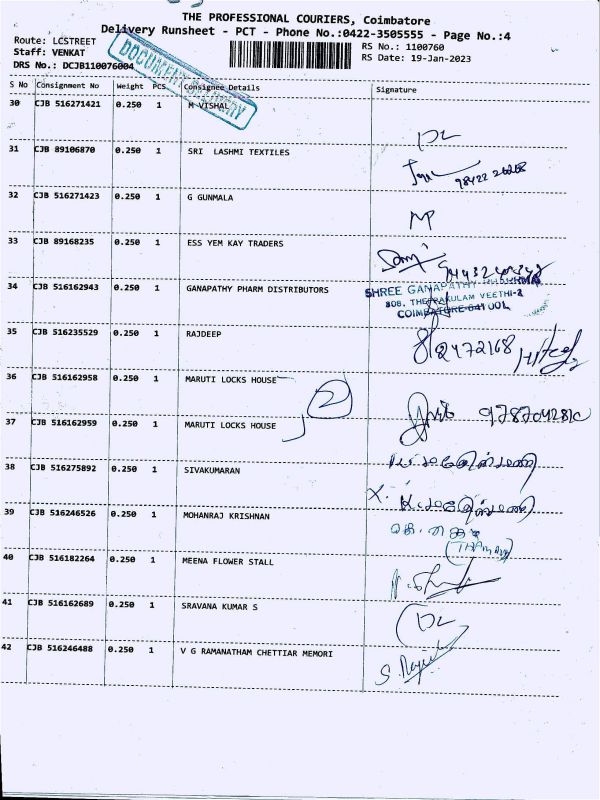 THE PROFESSIONAL COURIERS, Coimbatore
Delivery Runsheet - PCT - Phone No.:0422-3505555 - Page No.:4
Route: LCSTREET
Staff: VENKAT
DRS No.: DCJB110076004
RS No.: 1100760
RS Date: 19-Jan-2023
DOCUMENT DELIVERY
S No Consignment No Weight PCS Consignee Details Signature
30 CJB 516271421 0.250 1 M VISHAL
DL
31 CJB 89106870 0.250 1 SRI LASHMI TEXTILES
32 CJB 516271423 0.250 1 G GUNMALA
MP
33 CJB 89168235 0.250 1 ESS YEM KAY TRADERS
34 CJB 516162943 0.250 1 GANAPATHY PHARM DISTRIBUTORS
SHREE GANAPATHY
808, THEPPAKULAM VEETHI-2
COIMBATORE-641 001.
35 CJB 516235529 0.250 1 RAJDEEP
36 CJB 516162958 0.250 1 MARUTI LOCKS HOUSE
2
37 CJB 516162959 0.250 1 MARUTI LOCKS HOUSE
38 CJB 516275892 0.250 1 SIVAKUMARAN
39 CJB 516246526 0.250 1 MOHANRAJ KRISHNAN
40 CJB 516182264 0.250 1 MEENA FLOWER STALL
41 CJB 516162689 0.250 1 SRAVANA KUMAR S
DL
42 CJB 516246488 0.250 1 V G RAMANATHAM CHETTIAR MEMORI